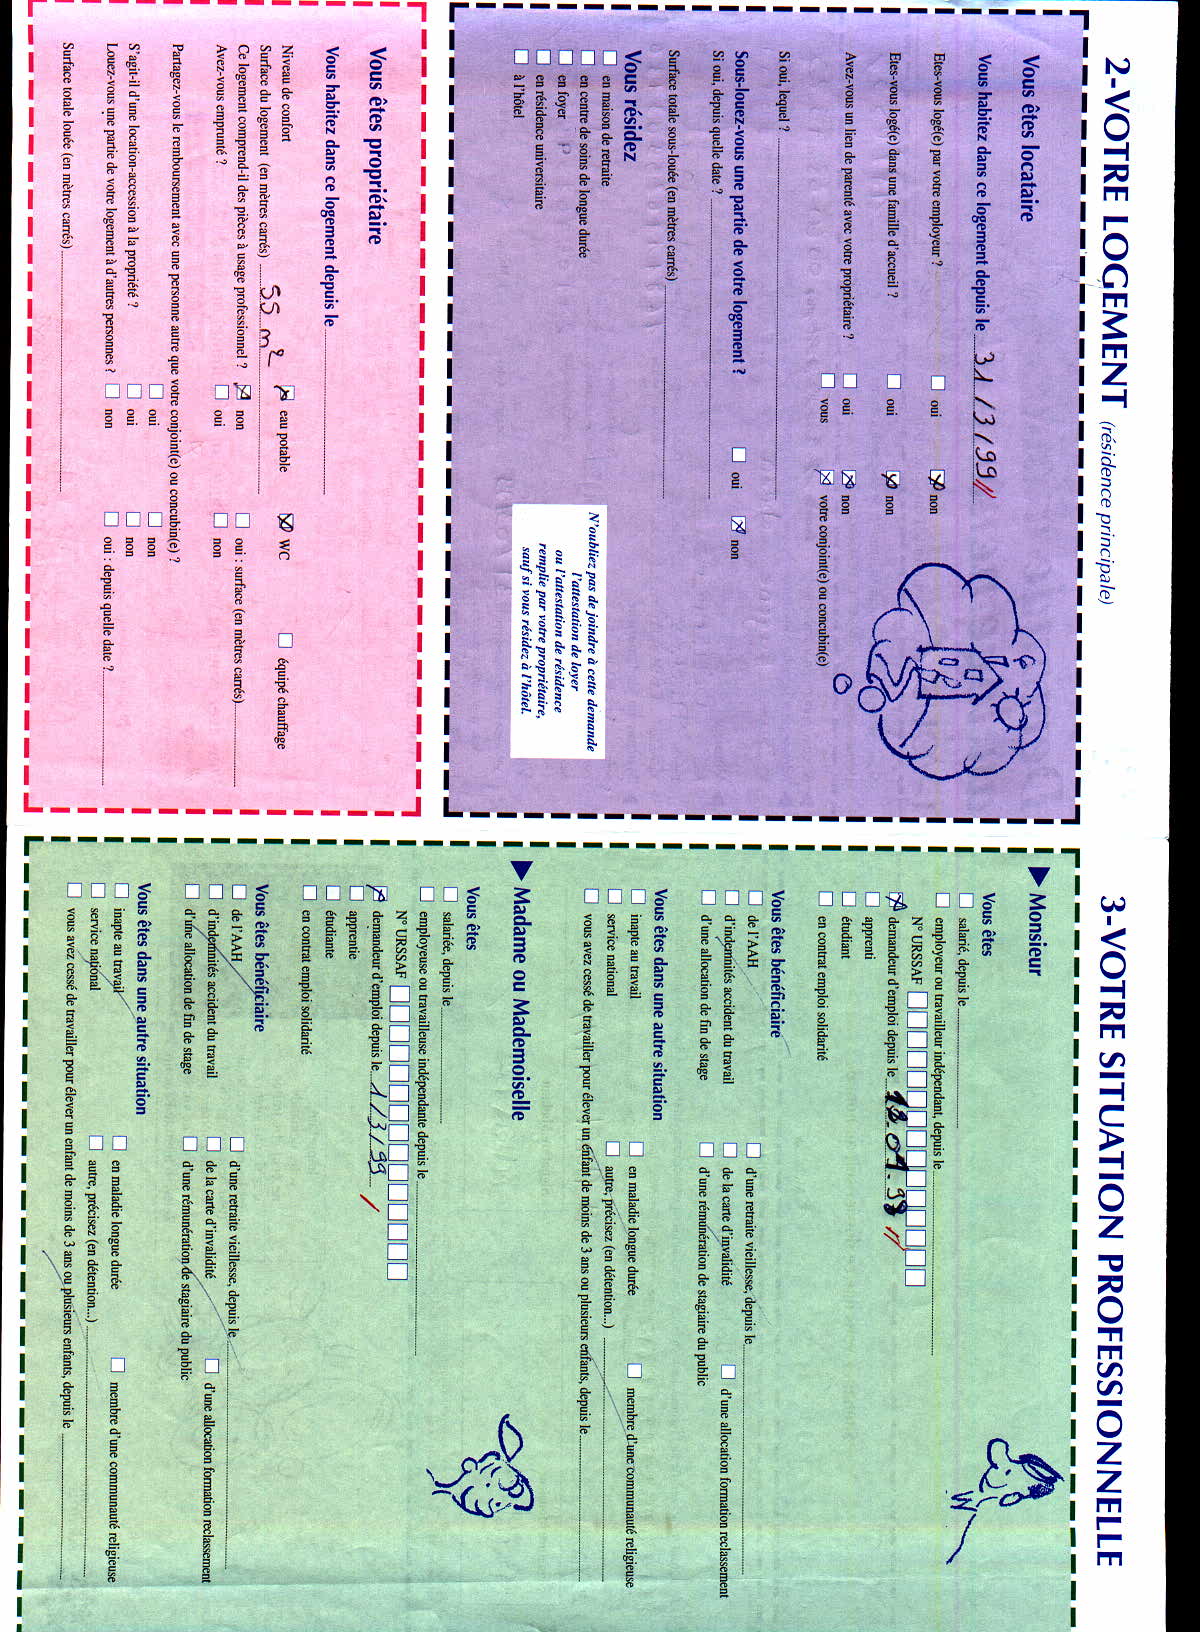 2-VOTRE LOGEMENT (résidence principale)
Vous êtes locataire
Vous habitez dans ce logement depuis le 31/3/99
Etes-vous logé(e) par votre employeur ? oui non
Etes-vous logé(e) dans une famille d'accueil ? oui non
Avez-vous un lien de parenté avec votre propriétaire ? oui non
vous votre conjoint(e) ou concubin(e)
Si oui, lequel ?
Sous-louez-vous une partie de votre logement ? oui non
Si oui, depuis quelle date ?
Surface totale sous-louée (en mètres carrés)
Vous résidez
en maison de retraite
en centre de soins de longue durée
en foyer
en résidence universitaire
à l'hôtel
N'oubliez pas de joindre à cette demande
l'attestation de loyer
ou l'attestation de résidence
remplie par votre propriétaire,
sauf si vous résidez à l'hôtel.
Vous êtes propriétaire
Vous habitez dans ce logement depuis le
Niveau de confort eau potable WC équipé chauffage
Surface du logement (en mètres carrés) 55 m2
Ce logement comprend-il des pièces à usage professionnel ? non oui : surface (en mètres carrés)
Avez-vous emprunté ? oui non
Partagez-vous le remboursement avec une personne autre que votre conjoint(e) ou concubin(e) ?
oui non
S'agit-il d'une location-accession à la propriété ? oui non
Louez-vous une partie de votre logement à d'autres personnes ? non oui : depuis quelle date ?
Surface totale louée (en mètres carrés)
3-VOTRE SITUATION PROFESSIONNELLE
Monsieur
Vous êtes
salarié, depuis le
employeur ou travailleur indépendant, depuis le
N° URSSAF
demandeur d'emploi depuis le
apprenti
étudiant
en contrat emploi solidarité
Vous êtes bénéficiaire
de l'AAH d'une retraite vieillesse, depuis le
d'indemnités accident du travail de la carte d'invalidité d'une allocation formation reclassement
d'une allocation de fin de stage d'une rémunération de stagiaire du public
Vous êtes dans une autre situation
inapte au travail en maladie longue durée membre d'une communauté religieuse
service national autre, précisez (en détention...)
vous avez cessé de travailler pour élever un enfant de moins de 3 ans ou plusieurs enfants, depuis le
Madame ou Mademoiselle
Vous êtes
salariée, depuis le
employeuse ou travailleuse indépendante depuis le
N° URSSAF
demandeur d'emploi depuis le 1/3/99
apprentie
étudiante
en contrat emploi solidarité
Vous êtes bénéficiaire
de l'AAH d'une retraite vieillesse, depuis le
d'indemnités accident du travail de la carte d'invalidité d'une allocation formation reclassement
d'une allocation de fin de stage d'une rémunération de stagiaire du public
Vous êtes dans une autre situation
inapte au travail en maladie longue durée membre d'une communauté religieuse
service national autre, précisez (en détention...)
vous avez cessé de travailler pour élever un enfant de moins de 3 ans ou plusieurs enfants, depuis le